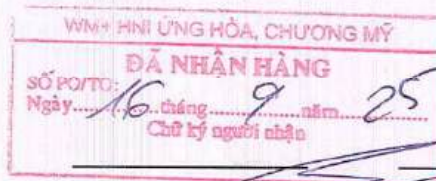 WM+ HNI ỨNG HÒA, CHƯƠNG MỸ
ĐÃ NHẬN HÀNG
SỐ PO/TO:
Ngày.....16.....tháng.....9.....năm.....25
Chữ ký người nhận